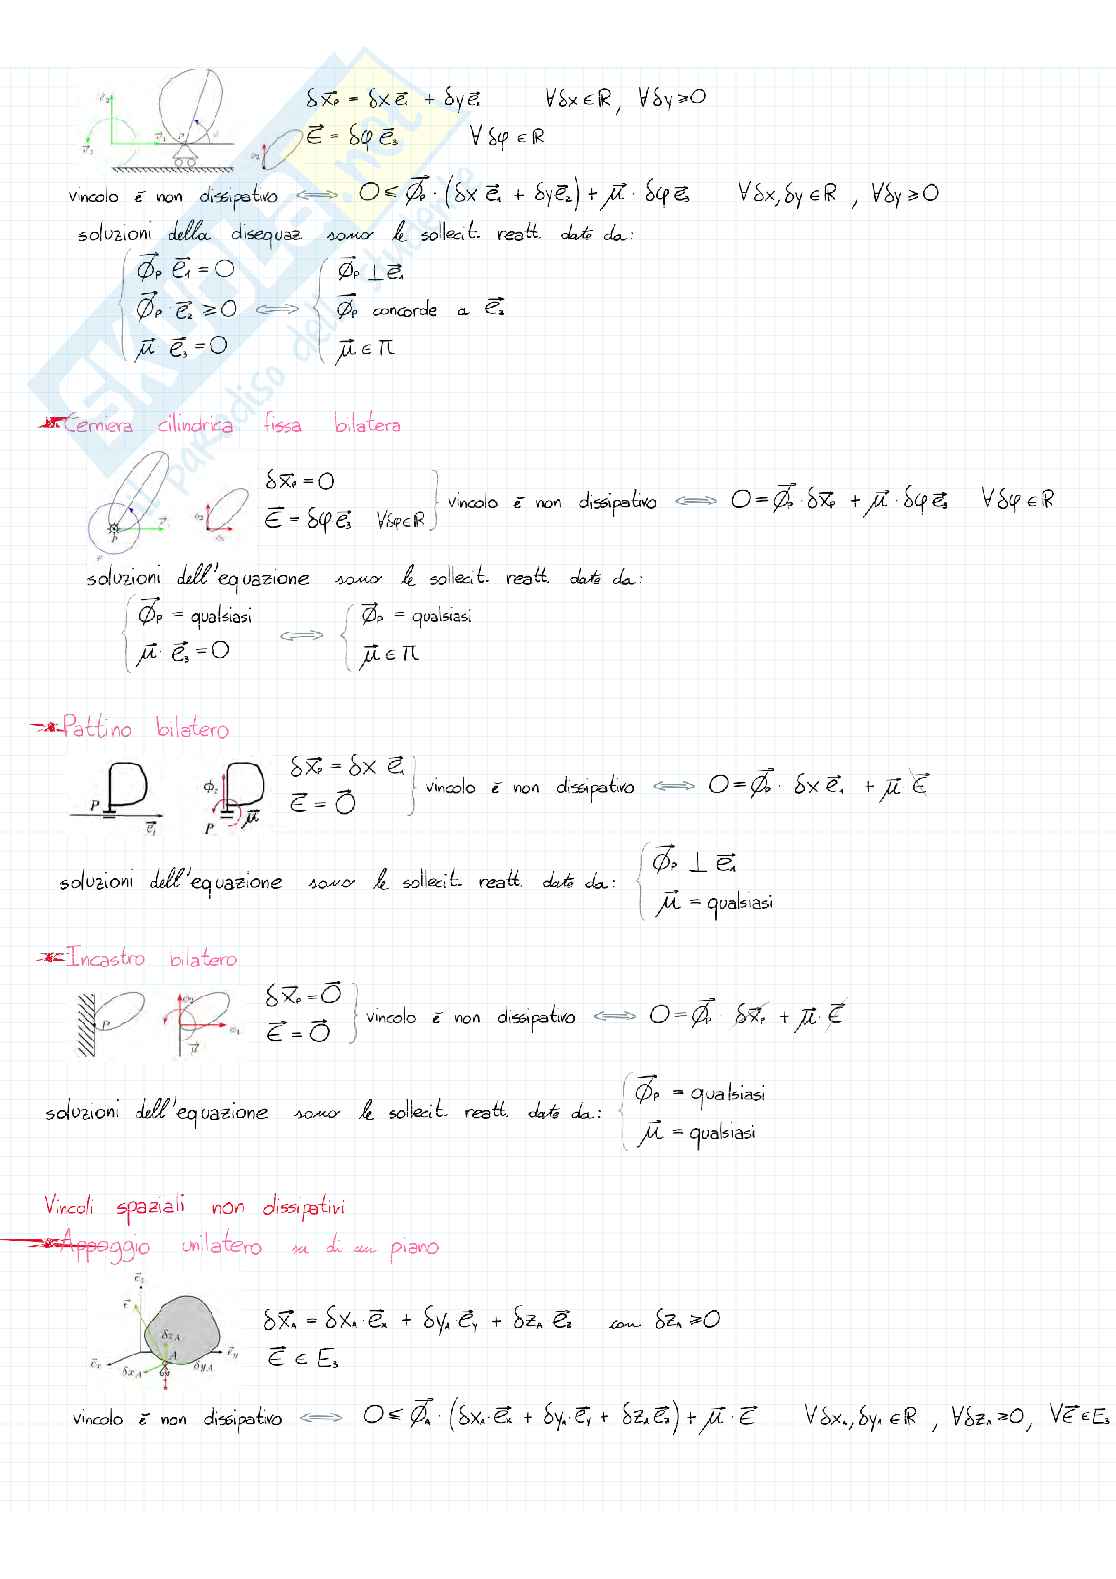 δx⃗ₚ = δx e⃗₁ + δy e⃗₁ ∀δx∈ℝ, ∀δy≥0
ε⃗ = δφ e⃗₃ ∀δφ∈ℝ
vincolo è non dissipativo ⟺ 0 ≤ Φ⃗ₚ · (δx e⃗₁ + δy e⃗₂) + μ⃗ · δφ e⃗₃ ∀δx, δy ∈ℝ , ∀δy≥0
soluzioni della disequaz. sono le sollecit. reatt. date da:
Φ⃗ₚ e⃗₁ = 0 Φ⃗ₚ ⊥ e⃗₁
Φ⃗ₚ · e⃗₂ ≥ 0 ⟺ Φ⃗ₚ concorde a e⃗₂
μ⃗ e⃗₃ = 0 μ⃗ ∈ π
Cerniera cilindrica fissa bilatera
δx⃗ₚ = 0
ε⃗ = δφ e⃗₃ ∀δφ∈ℝ
vincolo è non dissipativo ⟺ 0 = Φ⃗ₚ · δx⃗ₚ + μ⃗ · δφ e⃗₃ ∀δφ∈ℝ
P
soluzioni dell'equazione sono le sollecit. reatt. date da:
Φ⃗ₚ = qualsiasi ⟺ Φ⃗ₚ = qualsiasi
μ⃗ · e⃗₃ = 0 μ⃗ ∈ π
Pattino bilatero
δx⃗ₚ = δx e⃗₁
ε⃗ = 0⃗
vincolo è non dissipativo ⟺ 0 = Φ⃗ₚ · δx e⃗₁ + μ⃗ ε⃗
P e⃗₁
Φ₂ P μ⃗
soluzioni dell'equazione sono le sollecit. reatt. date da:
Φ⃗ₚ ⊥ e⃗₁
μ⃗ = qualsiasi
Incastro bilatero
δx⃗ₚ = 0⃗
ε⃗ = 0⃗
vincolo è non dissipativo ⟺ 0 = Φ⃗ₚ · δx⃗ₚ + μ⃗ · ε⃗
P e₂ e₁ μ⃗
soluzioni dell'equazione sono le sollecit. reatt. date da:
Φ⃗ₚ = qualsiasi
μ⃗ = qualsiasi
Vincoli spaziali non dissipativi
Appoggio unilatero su di un piano
e⃗z r⃗ δzA A e⃗x e⃗y δxA δyA
δx⃗A = δxA · e⃗x + δyA e⃗y + δzA e⃗z con δzA ≥ 0
ε⃗ ∈ E₃
vincolo è non dissipativo ⟺ 0 ≤ Φ⃗A · (δxA · e⃗x + δyA · e⃗y + δzA e⃗z) + μ⃗ · ε⃗ ∀δxA, δyA ∈ℝ , ∀δzA ≥0, ∀ε⃗ ∈ E₃